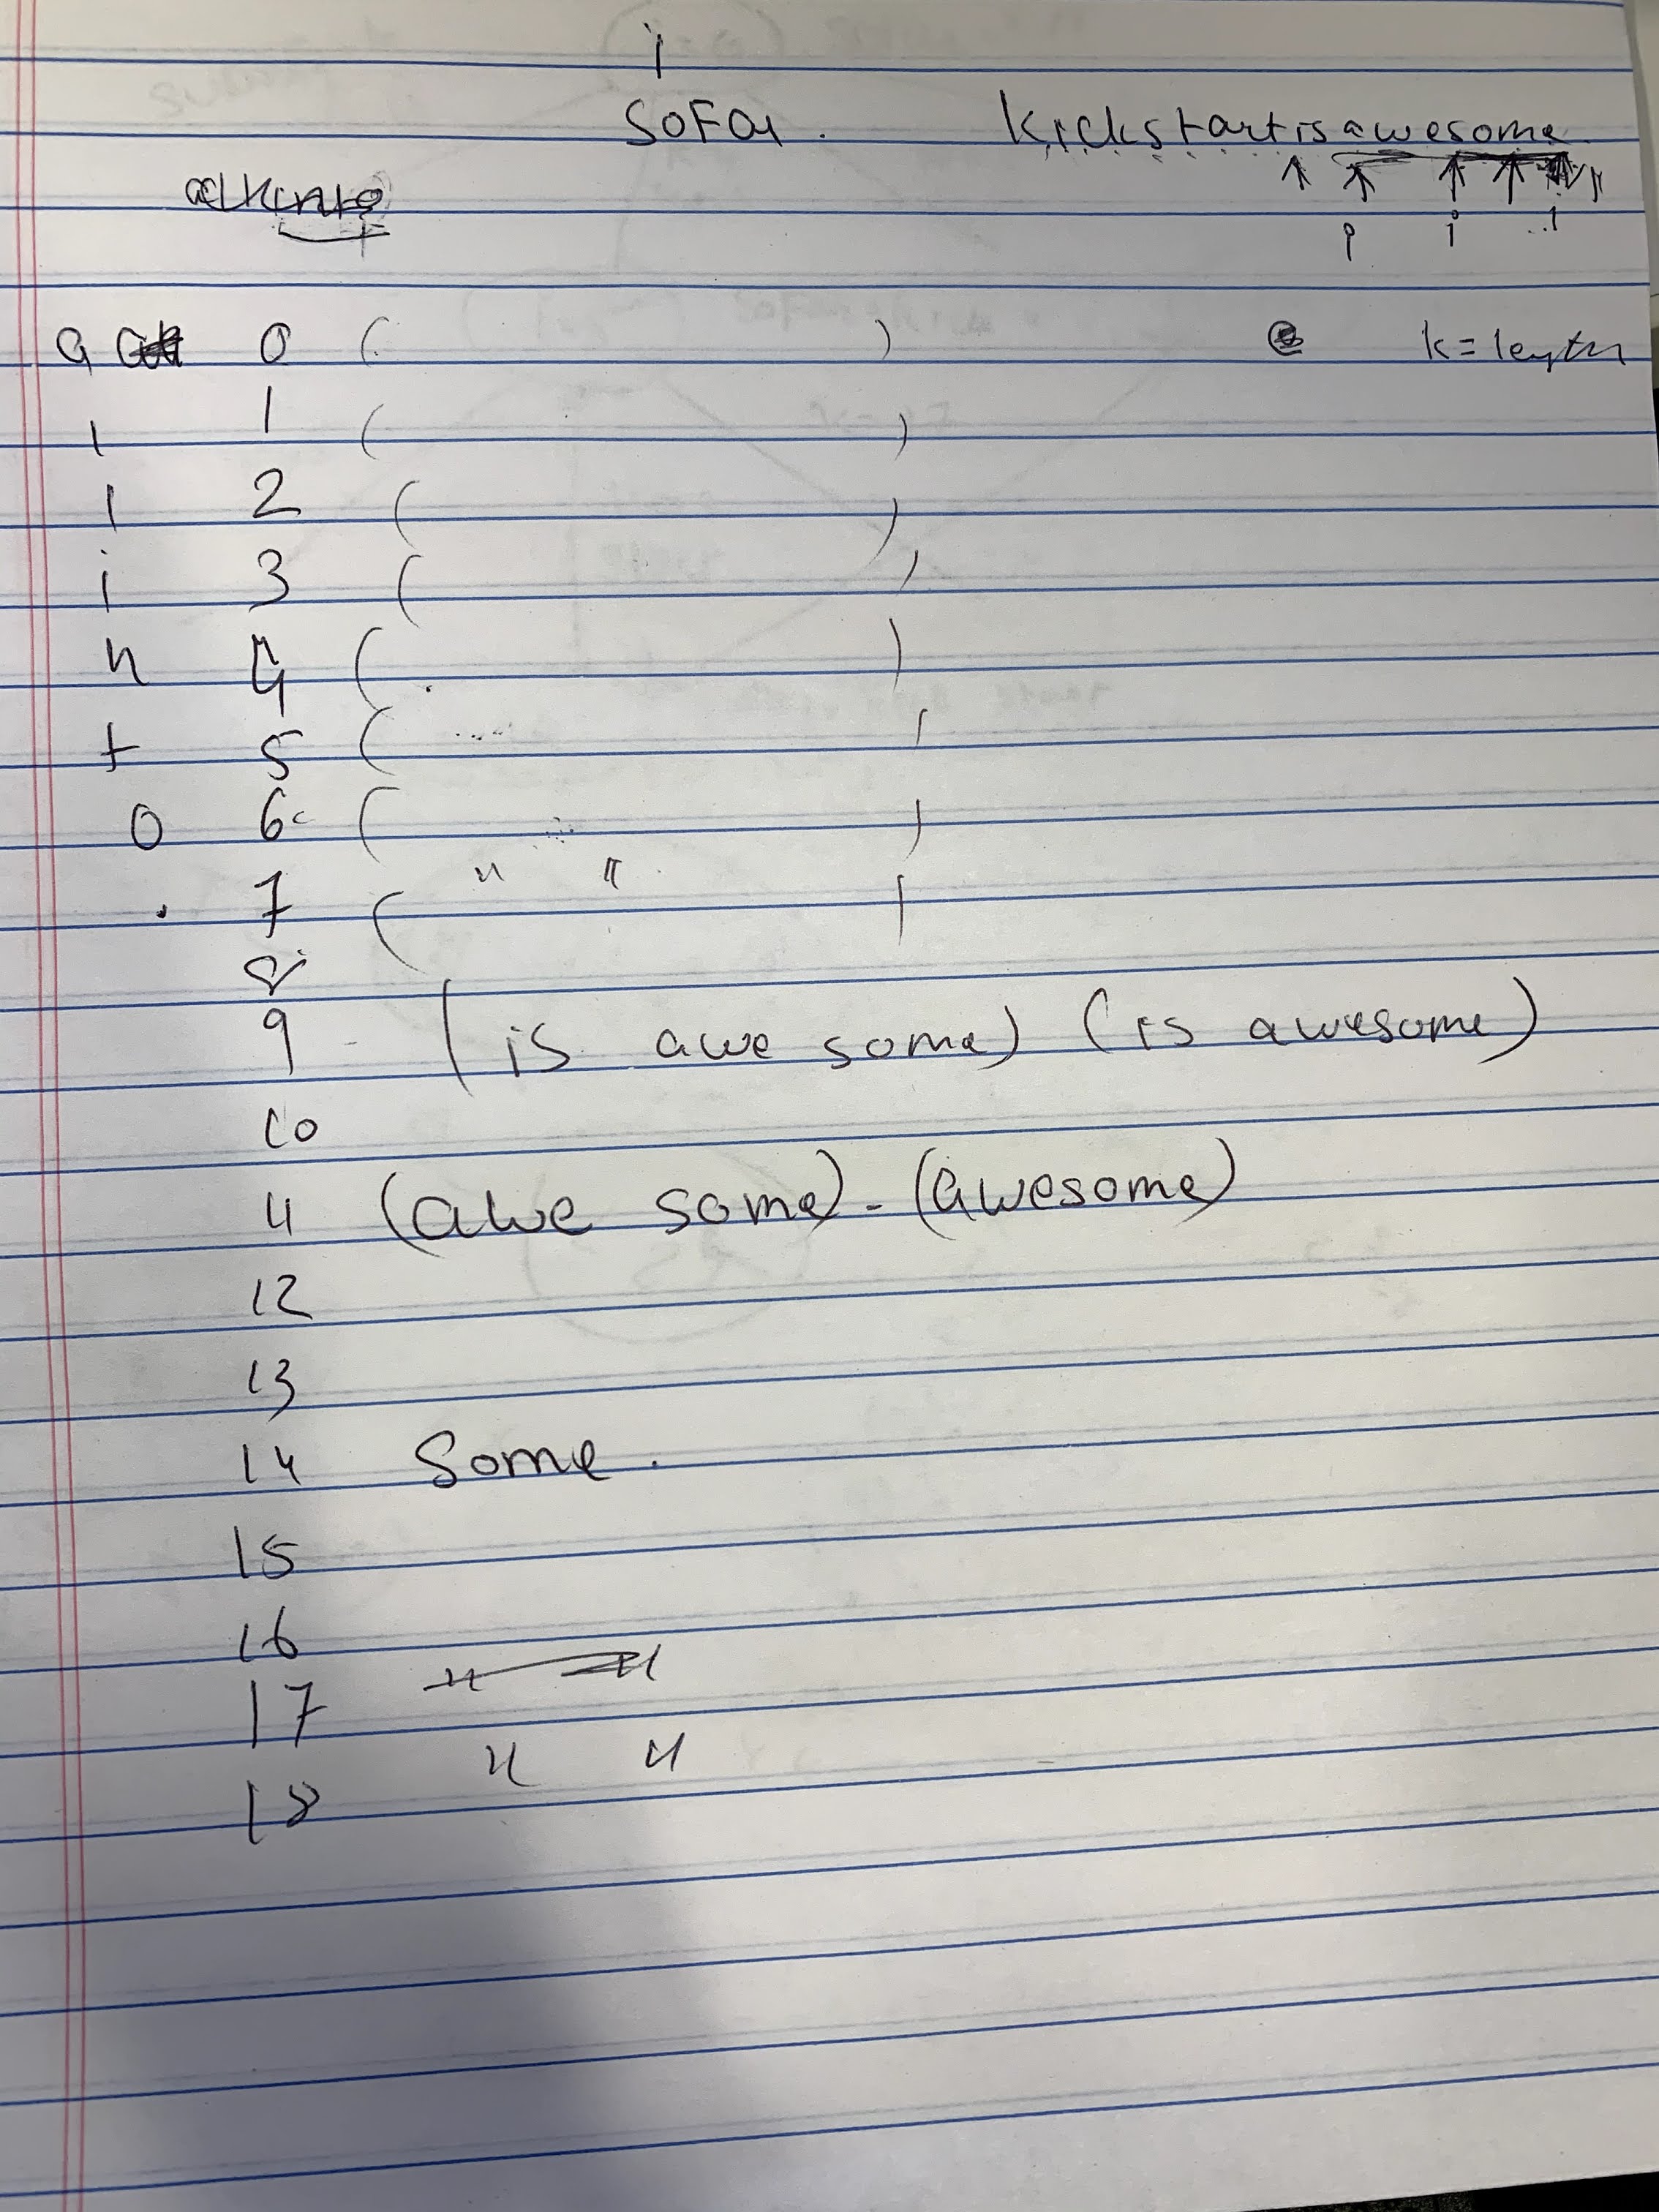 i
SOFar. kickstartisawesome
i i i
a 0 ( ) k=length
l 1 ( )
l 2 ( )
i 3 ( )
n 4 ( )
t 5 (
o 6 ( )
. 7 ( " " )
8
9 (is awe some) (is awesome)
10
11 (awe some) - (awesome)
12
13
14 Some.
15
16
17
" "
18